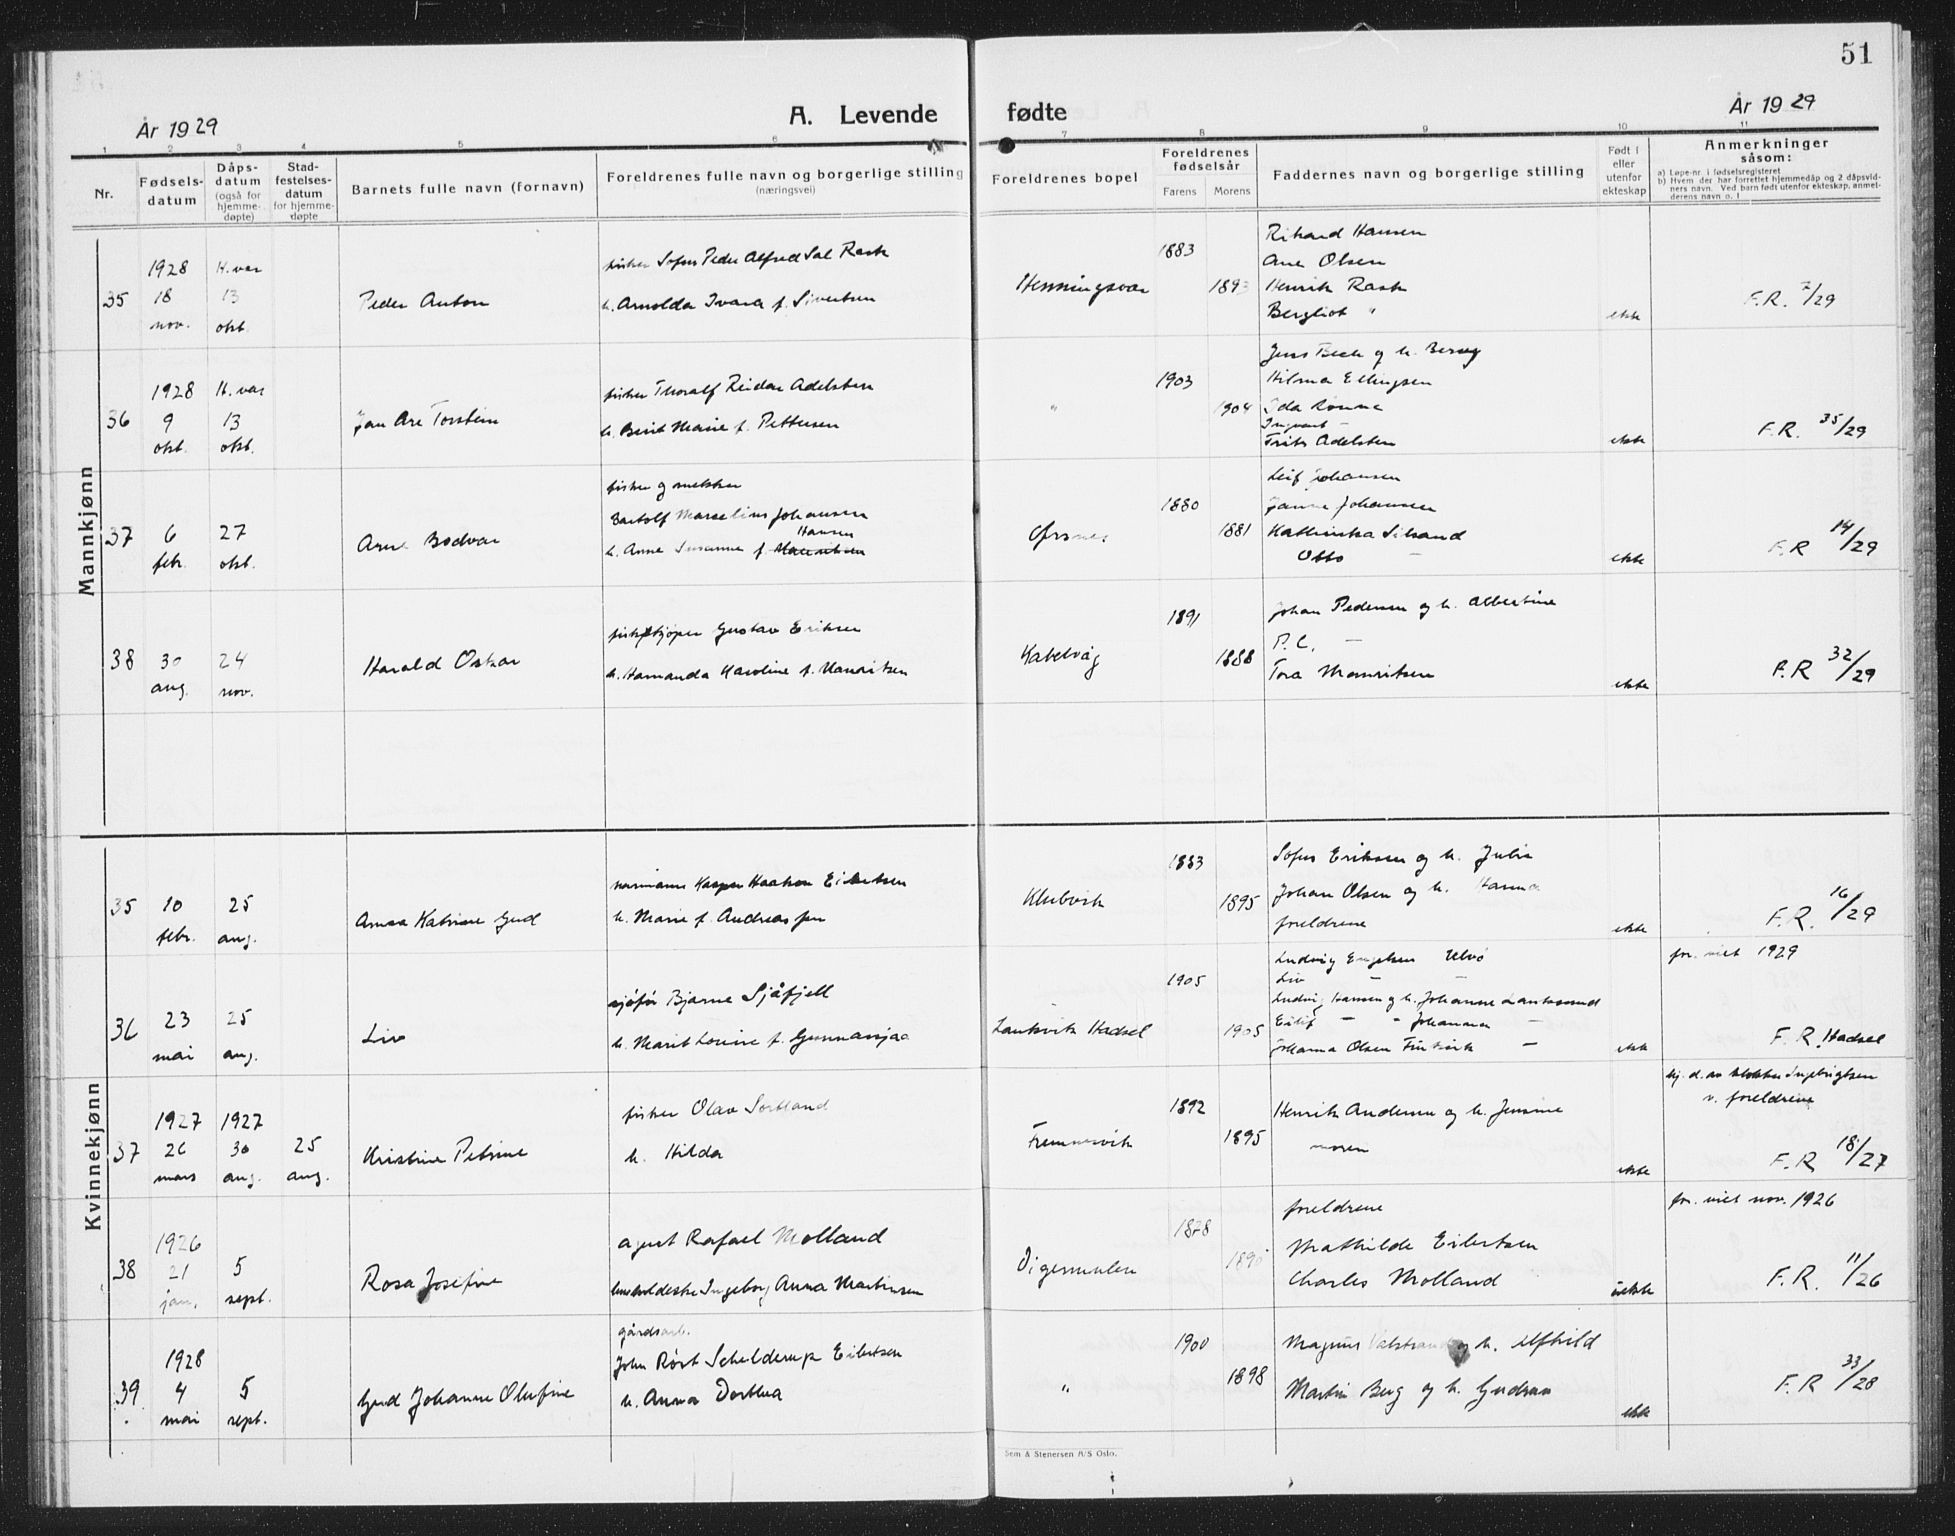 51
År 1929
A. Levende fødte
År 1929
1 2 3 4 5 6 7 8 9 10 11
Nr.
Fødsels-
datum
Dåps-
datum
(også for
hjemme-
døpte)
Stad-
festelses-
datum
for hjemme-
døpte
Barnets fulle navn (fornavn)
Foreldrenes fulle navn og borgerlige stilling
(næringsvei)
Foreldrenes bopel
Foreldrenes
fødselsår
Farens Morens
Faddernes navn og borgerlige stilling
Født i
eller
utenfor
ekteskap
Anmerkninger
såsom:
a) Løpe-nr. i fødselsregisteret
b) Hvem der har forrettet hjemmedåp og 2 dåpsvid-
ners navn. Ved barn født utenfor ekteskap, anmel-
derens navn o. l
Mannkjønn
35
1928
18
nov.
H. var
13
okt.
Peder Anton
fisker Sofus Peder Alfred Sal Rask
h. Arnolda Ivara f. Sivertsen
Henningsvær
1883
1893
Rikard Hansen
Ane Olsen
Henrik Rask
Bergliot "
ekte
F.R. 7/29
36
1928
9
okt.
H. var
13
okt.
Jan Are Torstein
fisker Thoralf Reidar Adelsten
h. Berit Marie f. Pettersen
"
1903
1904
Jens Bech og h.
Hilma Ellingsen
Ida Rønne
Frits Adelsten
ekte
F.R. 35/29
37
6
febr.
27
okt.
Arne Bodvar
fisker og snekker
Bartolf Marselius Johansen
Hansen
h. Anne Susanne f. Mauritsen
Ørsnes
1880
1881
Leif Johansen
Johansen
Kathinka
Otto –
ekte
F.R 14/29
38
30
aug.
24
nov.
Harald Oskar
fiskekjøper Gustav Eriksen
h. Hamanda Karoline f. Mauritsen
Kabelvåg
1891
1888
Johan Pedersen og h. Albertine
P.C. –
Tora Mauritsen
ekte
F.R 32/29
Kvinnekjønn
35
10
febr.
25
aug.
Anna Katrine Gud
Kasper Haakon Eilertsen
h. Marie f. Andreassen
Klubvik
1883
1895
Sofus Eriksen og h. Julie
Johan Olsen og h. Hanna
foreldrene
ekte
F.R. 16/29
36
23
mai
25
aug.
Liv
sjåfør Bjarne Sjåfjell
h. Marit Lovise f.
Laukvik Hadsel
1905
1905
Ludvig Engelsen Ulvø
Liv – –
Ludvig Hansen og h. Johanne
Eilif – " Johanna –
Johanna Olsen –
ekte
for. viet 1929
F.R. Hadsel
37
1927
26
mars
1927
30
aug.
25
aug.
Kristine Petrine
fisker Olav Sortland
h. Hilda
1892
1895
Henrik Andersen og h. Jensine
moren
ekte
hj. d. av klokker Ingebrigtsen
v. foreldrene
F.R 18/27
38
1926
21
jan.
5
sept.
Rosa Josefine
agent Rafael Molland
Ingeborg Anna Martinsen
Digermulen
1878
1890
foreldrene
Mathilde Eilertsen
Charles Molland
uekte
for. viet nov. 1926
F.R. 11/26
39
1928
4
mai
5
sept.
Gud Johanne Olufine
gårdsarb.
John Rørt Schelderup Eilertsen
h. Anna Dorthea
"
1900
1898
Magnus Valstrand og h. Alfhild
Martin Berg og h. Gudrun
ekte
F.R 33/28
Sem & Stenersen A/S Oslo.